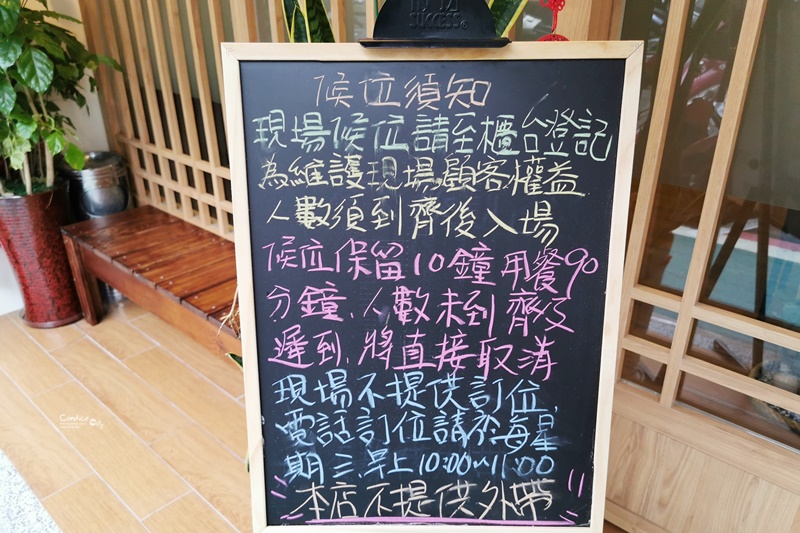 SUCCESS®
候位須知
現場候位請至櫃台登記
為維護現場顧客權益
人數須到齊後入場
候位保留10鐘 用餐90
分鐘、人數未到齊及
遲到、將直接取消
現場不提供訂位,
電話訂位請於每星
期三早上10:00~11:00
本店不提供外帶